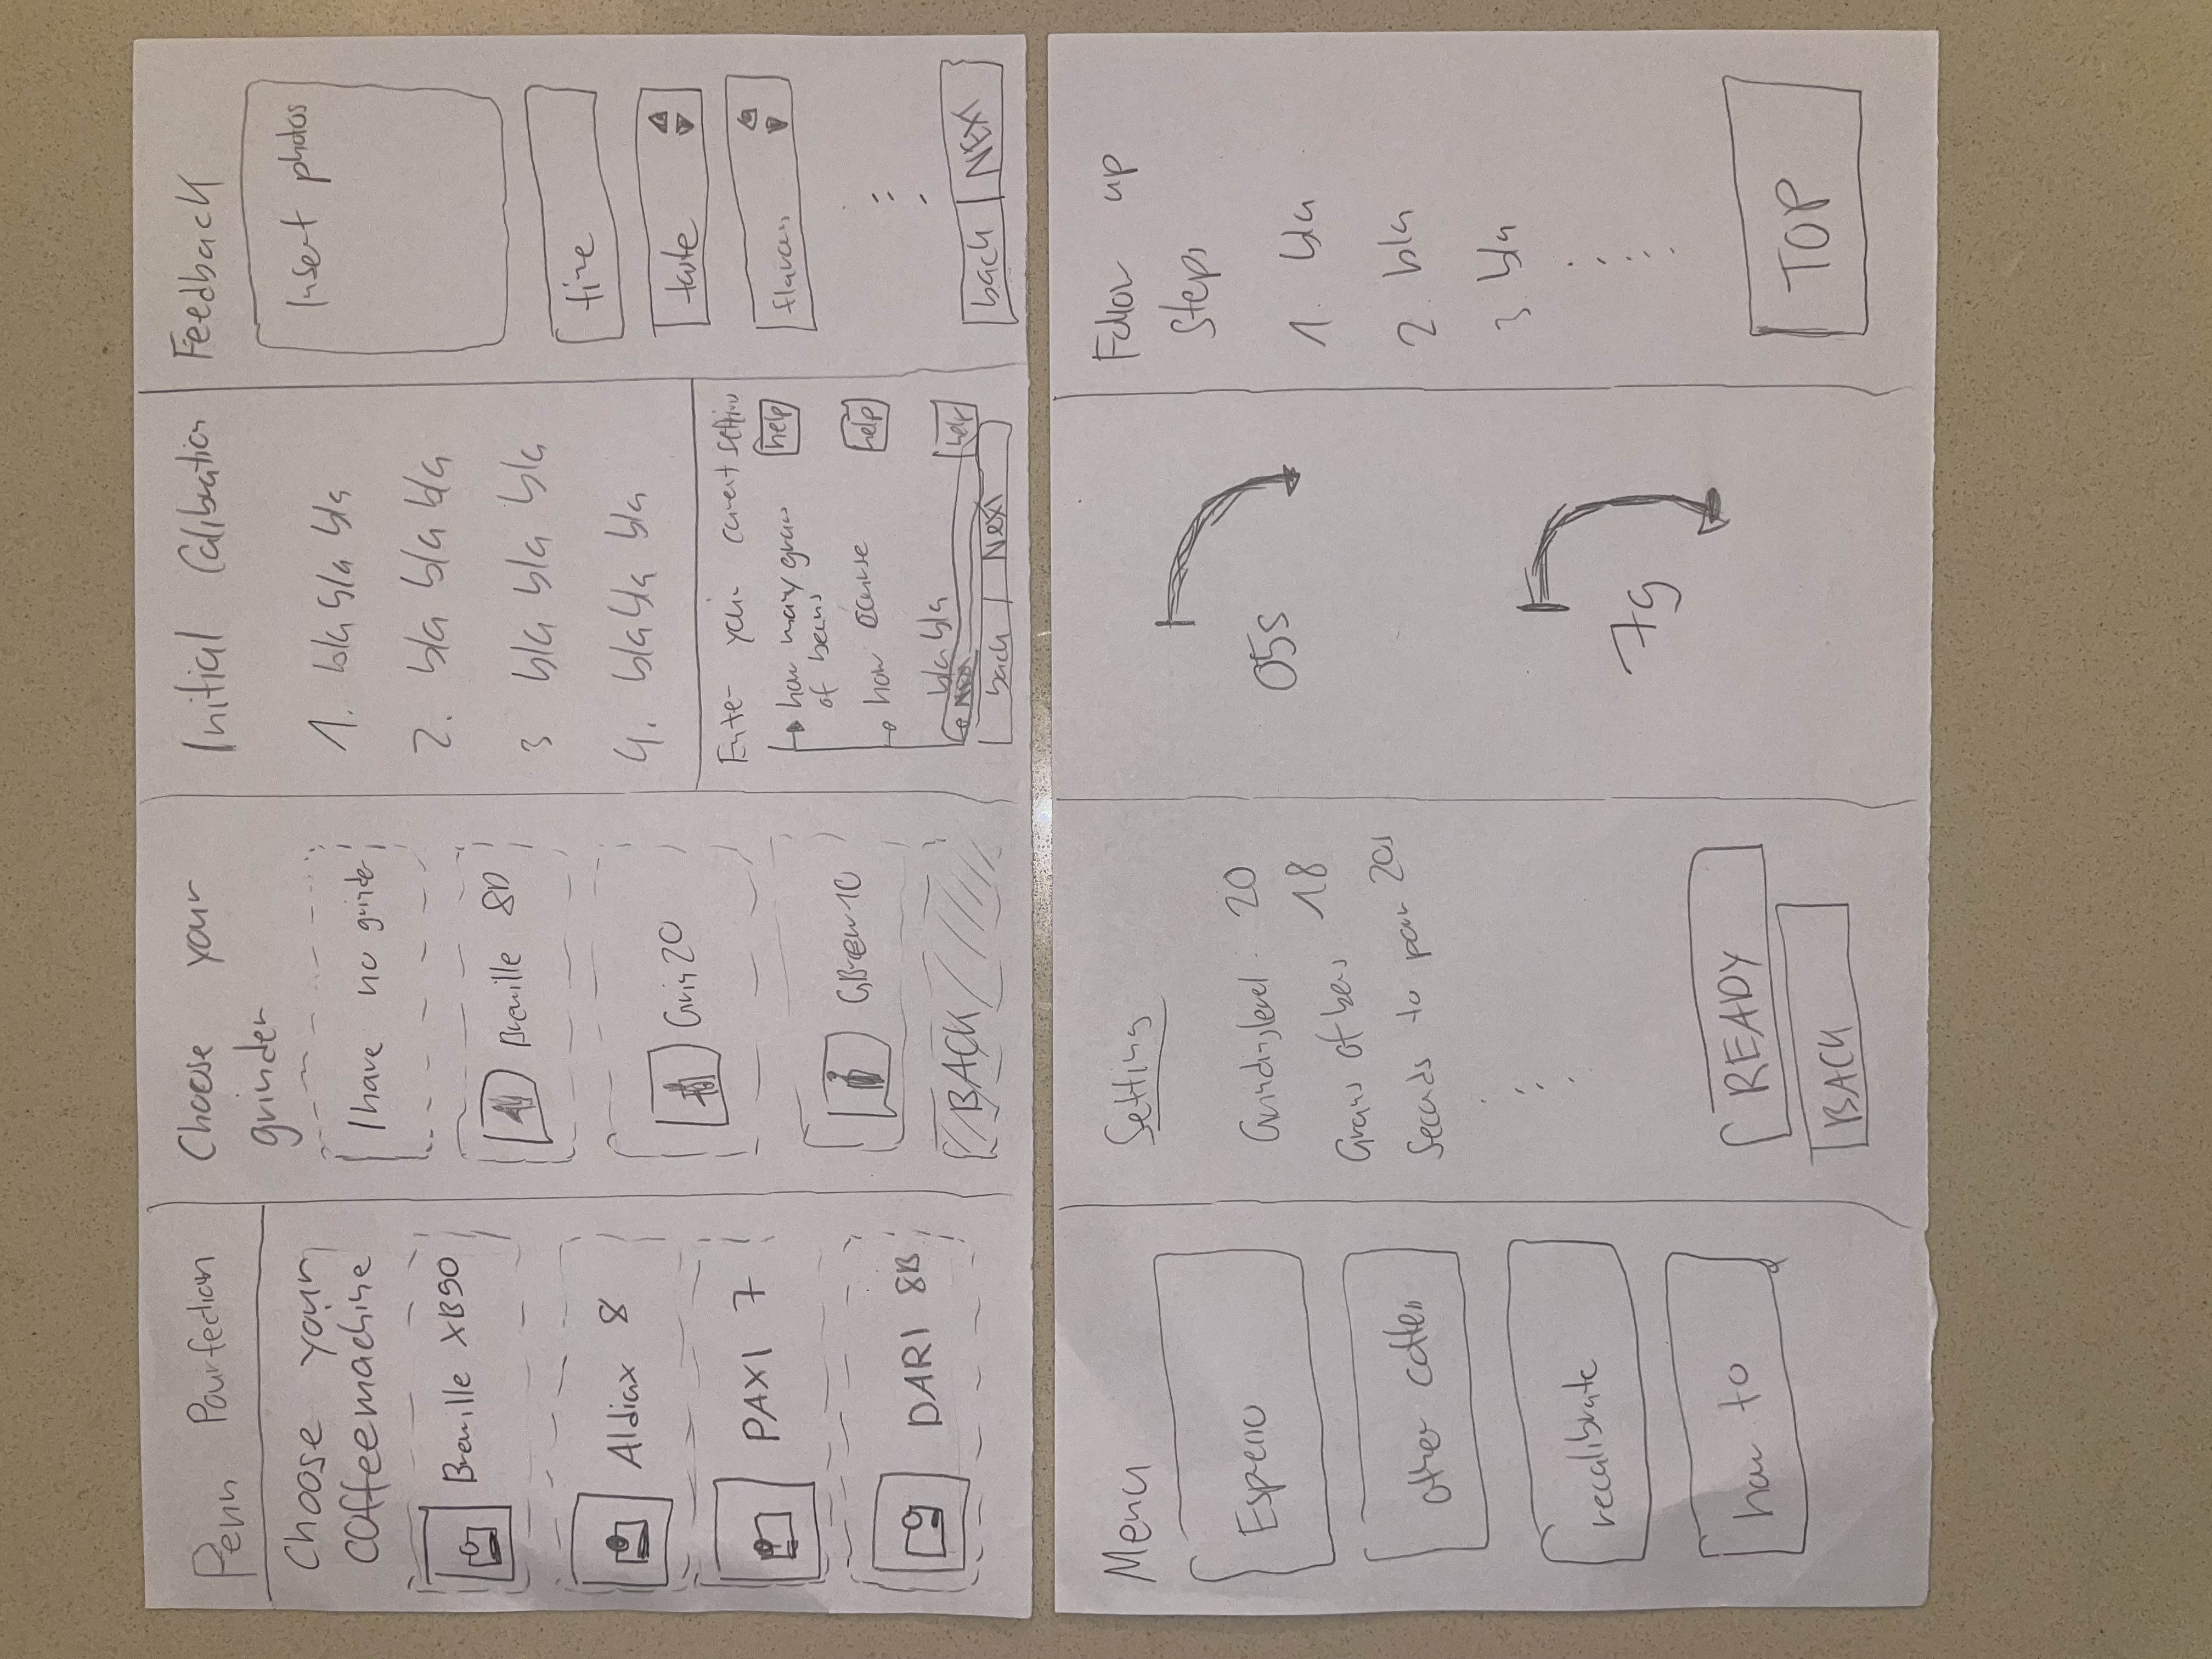 Penn Pourfection
Choose your
coffeemachine
Breville XB90
Aldiax 8
PAXI 7
DARI 8B
Choose your
grinder
I have no grinder
Breville 8D
Grin 20
GBrew 10
BACK
Initial Calibration
1. bla bla bla
2. bla bla bla
3 bla bla bla
4. bla bla bla
Enter your current setting
how many grams
of beans
help
how coarse
help
bla bla
help
back NEXT
Feedback
Insert photos
time
taste
flavour
back NEXT
Menu
Espresso
other coffees
recalibrate
how to
Setting
Grindinglevel: 20
Grams of beans 18
Seconds to pour 20s
READY
BACK
05s
7g
Follow up
Steps
1. bla
2. bla
3. bla
TOP